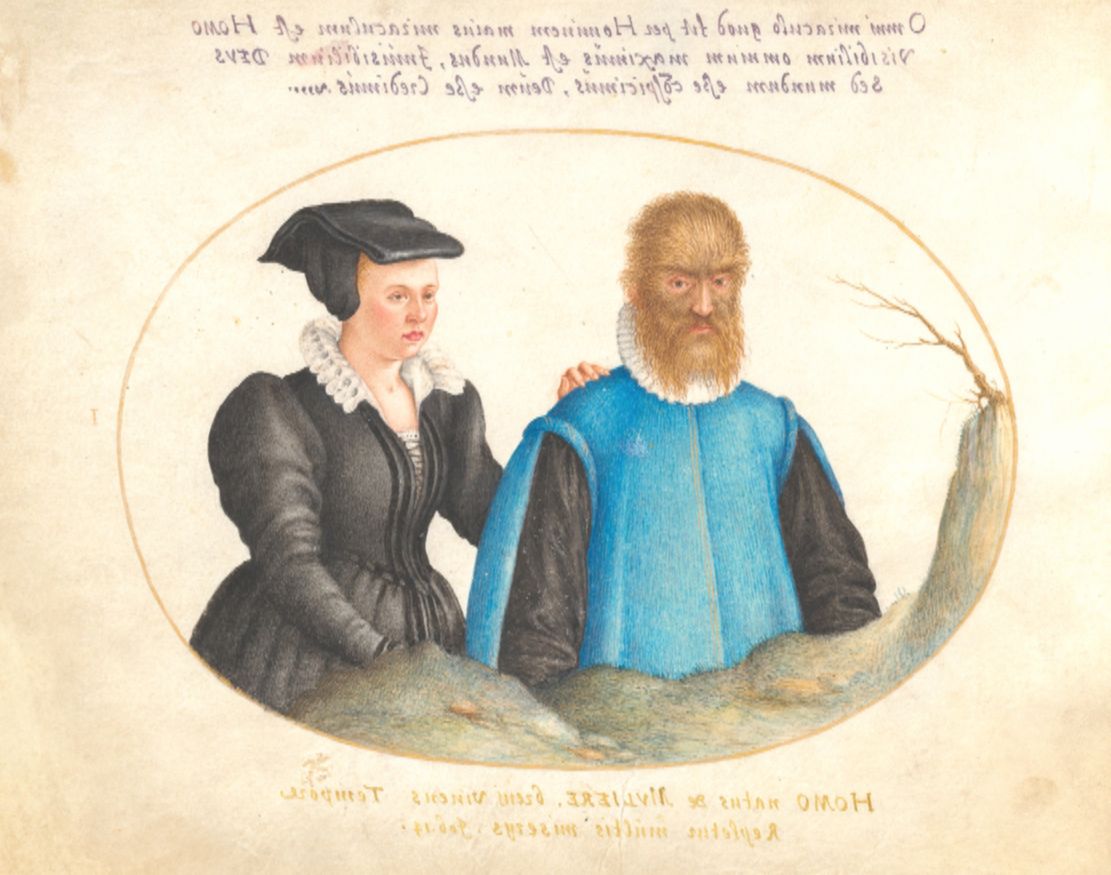 Omni miraculo quod fit per Hominem maius miraculum est HOMO
Visibilium omnium maximus est Mundus, Inuisibilium DEVS
Sed mundum esse cõspicimus, Deum esse Credimus
I
HOMO natus de MVLIERE, breui viuens Tempore
Repletur multis miserys. Iob.14.